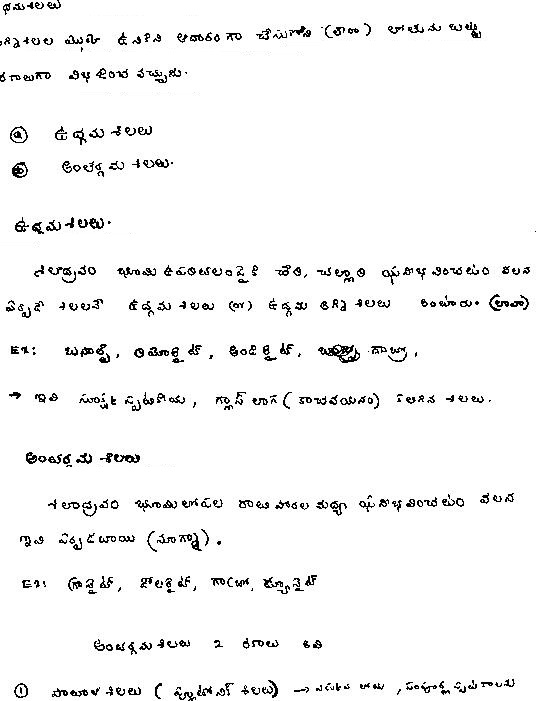 శిలలు
శిలల ఉనికిని ఆధారంగా చేసుగొని (లేదా) లోతును బట్టి
రకాలుగా విభజించ వచ్చును.
ⓐ ఉద్గమ శిలలు
ⓑ అంతర్గమ శిలలు.
ఉద్గమ శిలలు.
శిలాద్రవం భూమి ఉపరితలంపైకి చేరి, చల్లారి ఘనీభవించటం వలన
ఏర్పడే శిలలనే ఉద్గమ శిలలు (or) ఉద్గమ అగ్ని శిలలు అంటారు. (లావా)
Ex: బసాల్ట్, రియోలైట్, అండిసైట్,
→ ఇవి సూక్ష్మ స్పటికీయ, గ్లాస్ లాగ (కాచవయనం) కలిగిన శిలలు.
అంతర్గమ శిలలు
శిలాద్రవం భూమిలోపల రాతి పొరల మధ్య ఘనీభవించటం వలన
ఇవి ఏర్పడతాయి (మాగ్మా).
Ex: గ్రానైట్, డోలరైట్, గాబ్రో, డ్యూనైట్
అంతర్గమ శిలలు 2 రకాలు అవి
① పాతాళ శిలలు (ప్లూటోనిక్ శిలలు) → లోతు,